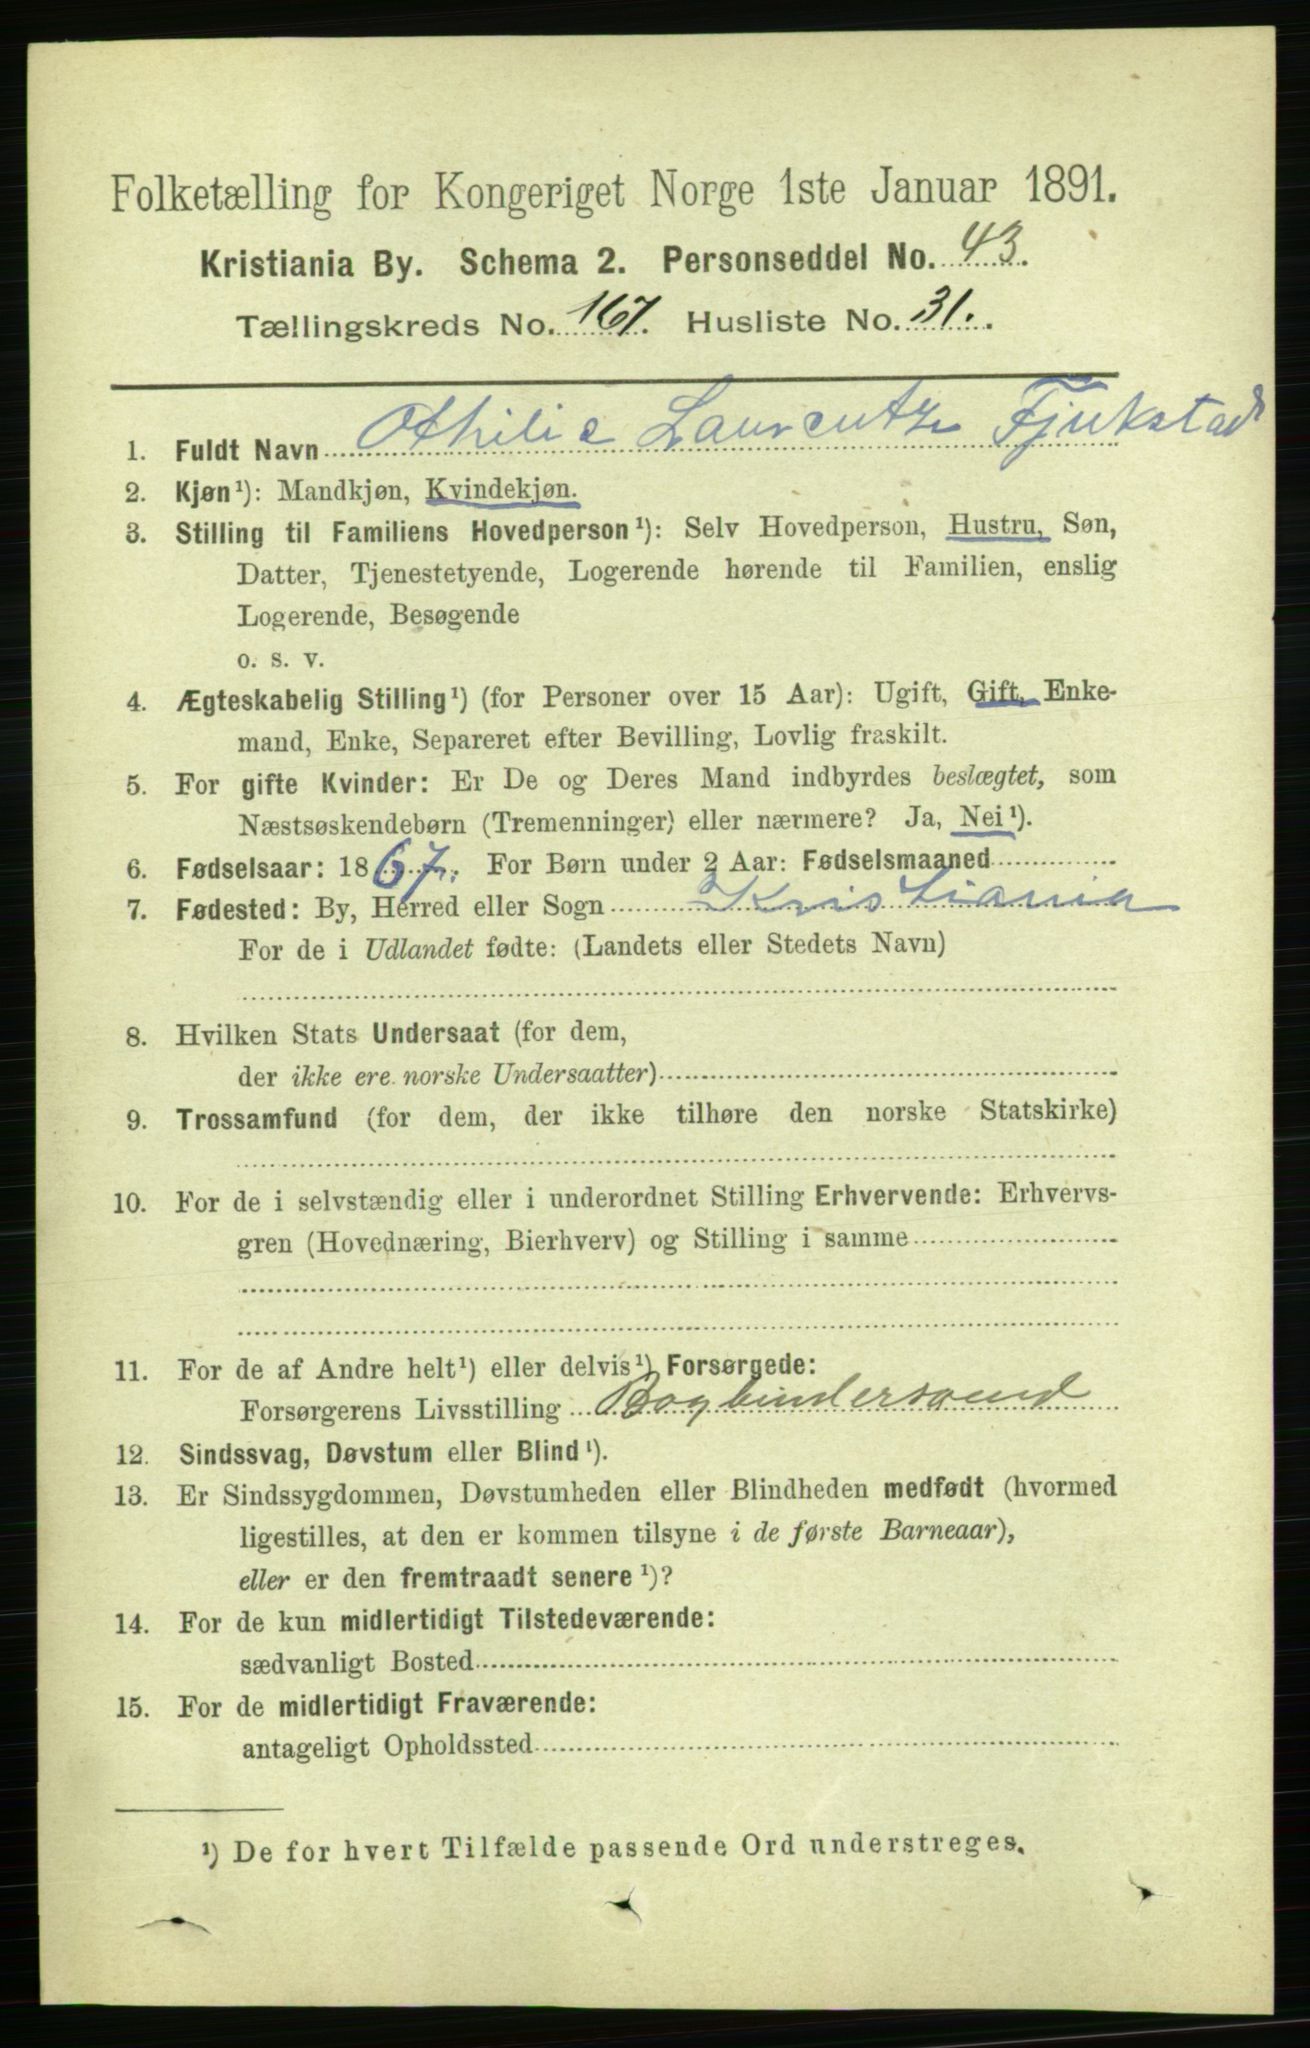 Folketælling for Kongeriget Norge 1ste Januar 1891.
Kristiania By. Schema 2. Personseddel No. 43.
Tællingskreds No. 167. Husliste No. 31.
1. Fuldt Navn Othilie Laurentze Fjukstad
2. Kjøn¹): Mandkjøn, Kvindekjøn.
3. Stilling til Familiens Hovedperson¹): Selv Hovedperson, Hustru, Søn,
Datter, Tjenestetyende, Logerende hørende til Familien, enslig
Logerende, Besøgende
o. s. v.
4. Ægteskabelig Stilling¹) (for Personer over 15 Aar): Ugift, Gift, Enke-
mand, Enke, Separeret efter Bevilling, Lovlig fraskilt.
5. For gifte Kvinder: Er De og Deres Mand indbyrdes beslægtet, som
Næstsøskendebørn (Tremenninger) eller nærmere? Ja, Nei¹).
6. Fødselsaar: 1867. For Børn under 2 Aar: Fødselsmaaned
7. Fødested: By, Herred eller Sogn Kristiania
For de i Udlandet fødte: (Landets eller Stedets Navn)
8. Hvilken Stats Undersaat (for dem,
der ikke ere norske Undersaatter)
9. Trossamfund (for dem, der ikke tilhøre den norske Statskirke)
10. For de i selvstændig eller i underordnet Stilling Erhvervende: Erhvervs-
gren (Hovednæring, Bierhverv) og Stilling i samme
11. For de af Andre helt¹) eller delvis¹) Forsørgede:
Forsørgerens Livsstilling Bogbindersvend
12. Sindssvag, Døvstum eller Blind¹).
13. Er Sindssygdommen, Døvstumheden eller Blindheden medfødt (hvormed
ligestilles, at den er kommen tilsyne i de første Barneaar),
eller er den fremtraadt senere¹)?
14. For de kun midlertidigt Tilstedeværende:
sædvanligt Bosted
15. For de midlertidigt Fraværende:
antageligt Opholdssted
¹) De for hvert Tilfælde passende Ord understreges.